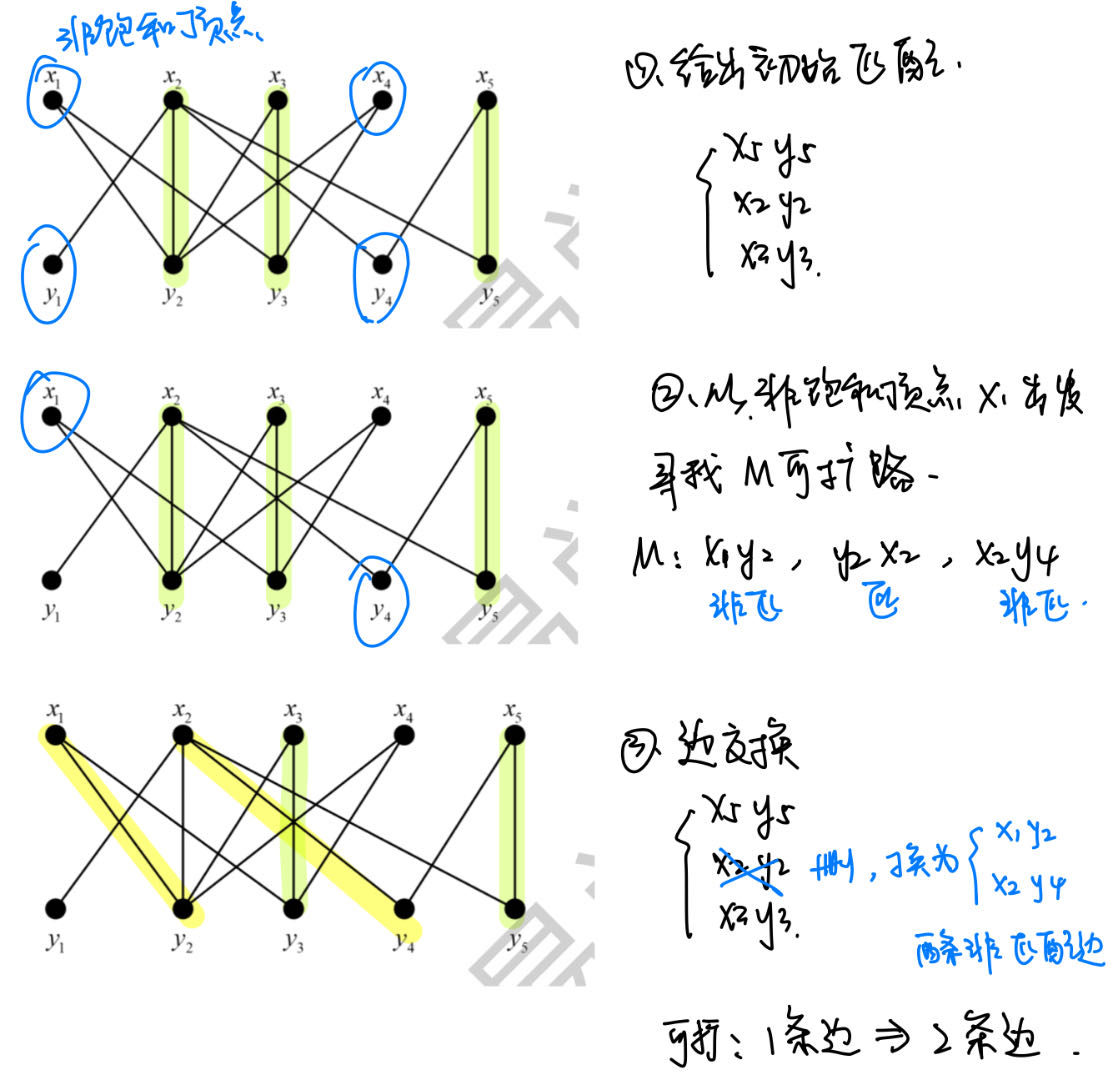 非饱和顶点
x₁ x₂ x₃ x₄ x₅
y₁ y₂ y₃ y₄ y₅
①、给出初始匹配.
x5 y5
x2 y2
x3 y3.
x₁ x₂ x₃ x₄ x₅
y₁ y₂ y₃ y₄ y₅
②、从非饱和顶点 x1 出发
寻找 M 可扩路.
M: x1y2, y2x2, x2y4
非匹 匹 非匹.
x₁ x₂ x₃ x₄ x₅
y₁ y₂ y₃ y₄ y₅
③、边交换
x5 y5
x2 y2 删, 换为 x1 y2
x2 y4
x3 y3.
两条非匹配边
可扩: 1条边 ⇒ 2条边.